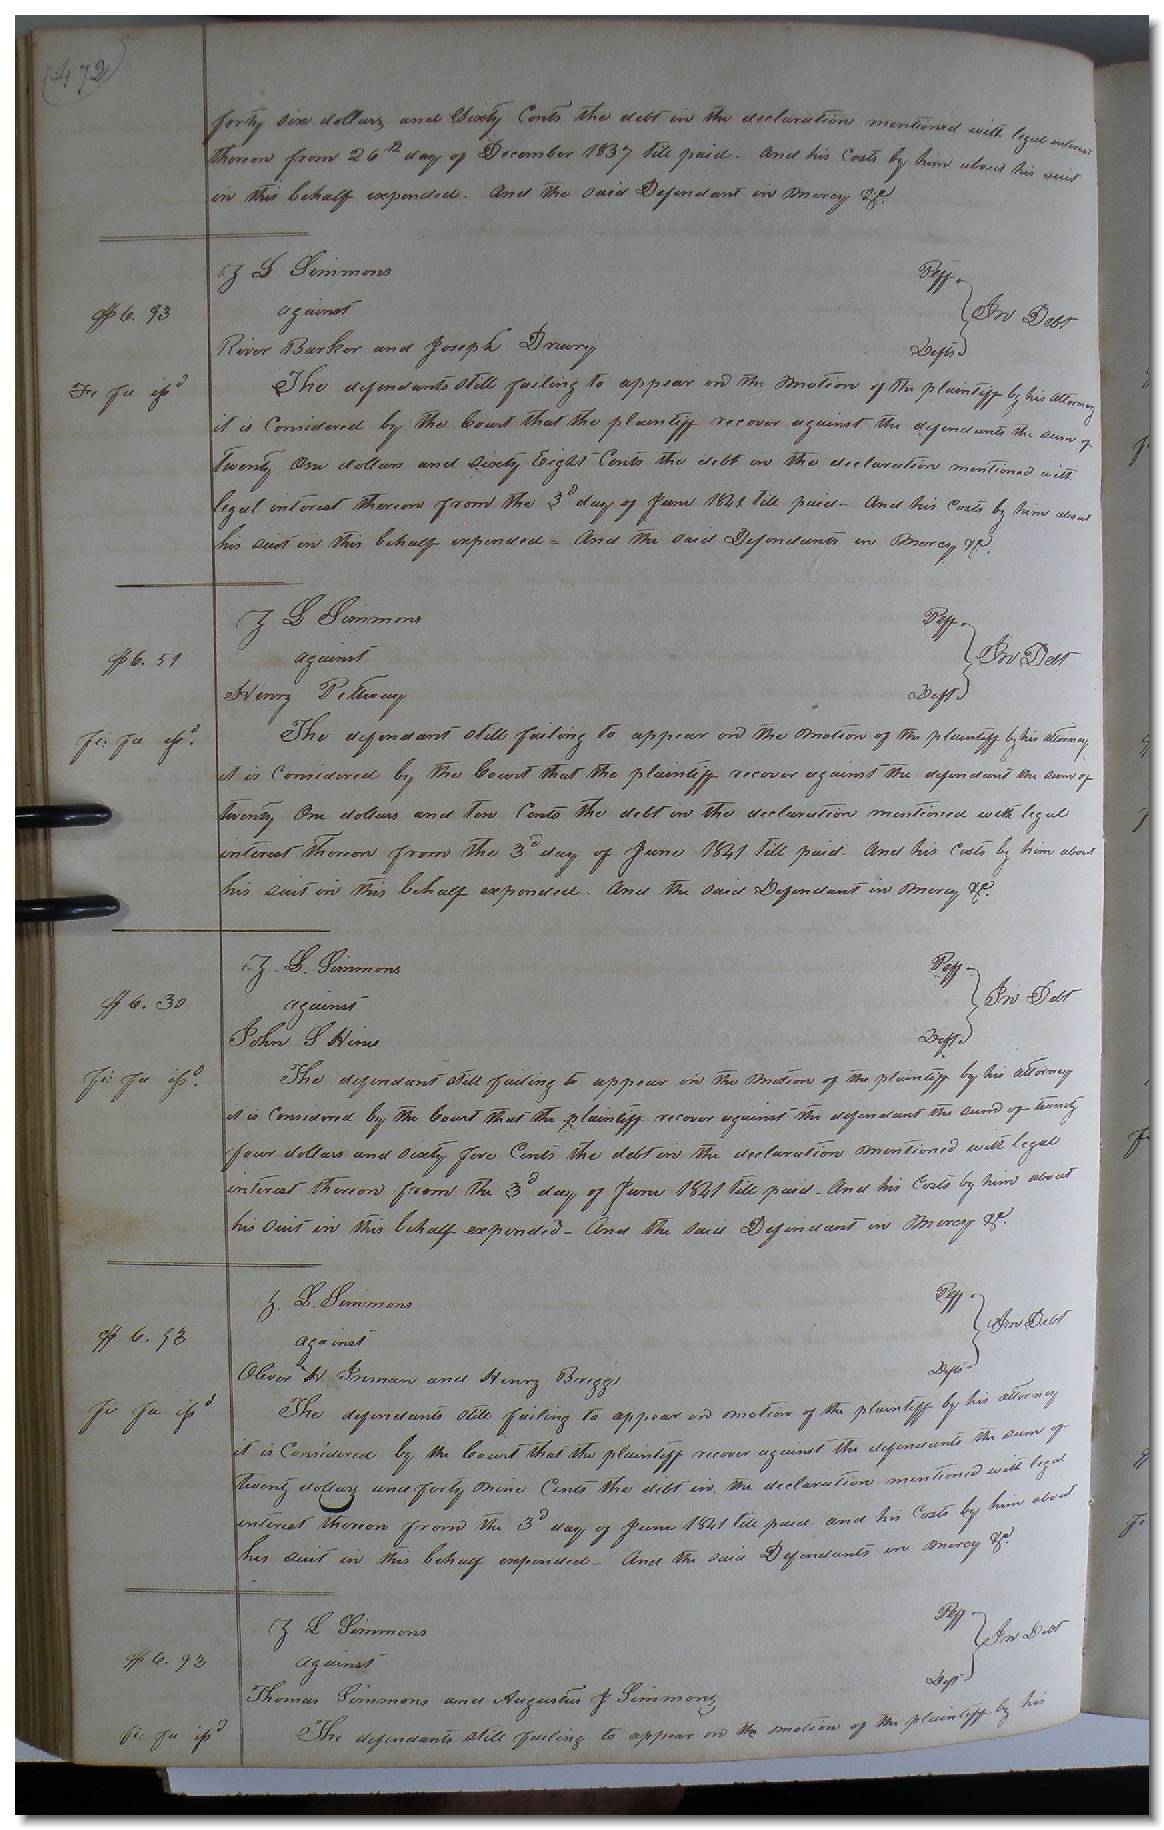 472
forty six dollars and Sixty Cents the debt in the declaration mentioned with legal interest
thereon from 26th day of December 1837 till paid. And his Costs by him about his suit
in this behalf expended. And the said Defendant in mercy &c.
Z L Simmons Plff
$6.93 against In Debt
River Barker and Joseph Drewry Defts
Fi fa issd The defendants still failing to appear on the motion of the plaintiff by his attorney
it is Considered by the Court that the plaintiff recover against the defendants the sum of
Twenty One dollars and sixty Eight Cents the debt in the declaration mentioned with
legal interest thereon from the 3d day of June 1841 till paid - And his Costs by him about
his suit in this behalf expended - And the said Defendants in Mercy &c.
Z L Simmons Plff
$6.51 against In Debt
Henry Pettway Deft
fi: fa issd. The defendant still failing to appear on the motion of the plaintiff by his attorney
it is Considered by the Court that the plaintiff recover against the defendant the sum of
twenty One dollars and ten Cents the debt in the declaration mentioned with legal
interest thereon from the 3d day of June 1841 till paid. And his Costs by him about
his suit in this behalf expended. And the said Defendant in Mercy &c.
Z. L. Simmons Plff
$6.30 against In Debt
John S Hines Deft
fi: fa issd. The defendant still failing to appear on the motion of the plaintiff by his attorney
it is Considered by the Court that the plaintiff recover against the defendant the sum of twenty
four dollars and sixty five Cents the debt in the declaration mentioned with legal
interest thereon from the 3d day of June 1841 till paid - And his Costs by him about
his Suit in this behalf expended - And the said Defendant in Mercy &c.
Z. L. Simmons Plff
$6.93 against In Debt
Oliver H Inman and Henry Briggs Defts
fi fa issd The defendants still failing to appear on motion of the plaintiff by his attorney
it is Considered by the Court that the plaintiff recover against the defendants the sum of
twenty dollars and forty nine Cents the debt in the declaration mentioned with legal
interest thereon from the 3d day of June 1841 till paid and his Costs by him about
his suit in this behalf expended - And the said Defendants in mercy &c.
Z L Simmons Plff
$6.93 against In Debt
Thomas Simmons and Augustus J Simmons Deft
fi: fa issd The defendants still failing to appear on the motion of the plaintiff by his